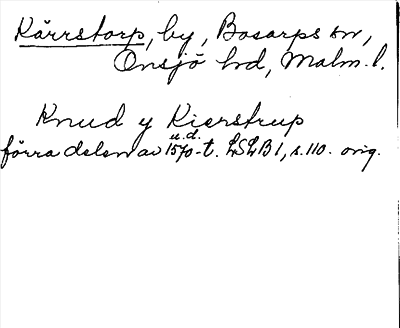 Kärrstorp, by, Bosarps sn,
Onsjö hd, Malm. l.
Knud y Kierstrup
u.d.
förra delen av 1570-t. LSLB 1, s. 110. orig.